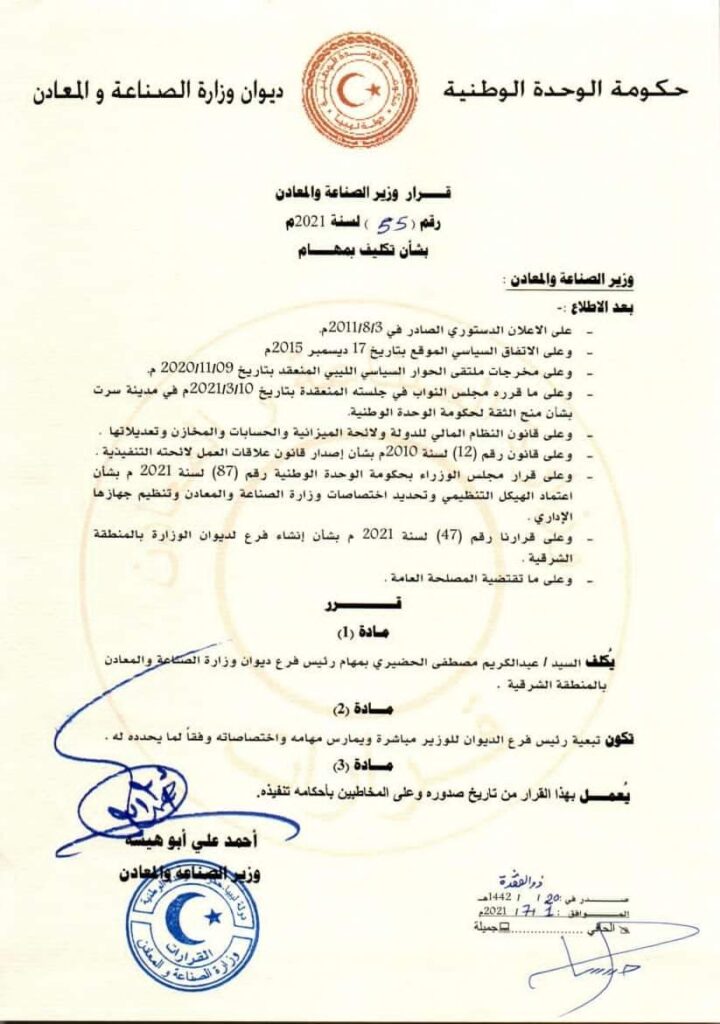 حكومة الوحدة الوطنية
ديوان وزارة الصناعة و المعادن
حكومة الوحدة الوطنية
دولة ليبيا
قـــرار وزير الصناعة والمعادن
رقم (55) لسنة 2021م
بشأن تكليف بمهـــام
وزير الصناعة والمعادن :
بعد الاطلاع :-
- على الاعلان الدستوري الصادر في 2011/8/3م.
- وعلى الاتفاق السياسي الموقع بتاريخ 17 ديسمبر 2015م
- وعلى مخرجات ملتقى الحوار السياسي الليبي المنعقد بتاريخ 2020/11/09 م.
- وعلى ما قرره مجلس النواب في جلسته المنعقدة بتاريخ 2021/3/10م في مدينة سرت
بشأن منح الثقة لحكومة الوحدة الوطنية.
- وعلى قانون النظام المالي للدولة ولائحة الميزانية والحسابات والمخازن وتعديلاتها .
- وعلى قانون رقم (12) لسنة 2010م بشأن إصدار قانون علاقات العمل لائحته التنفيذية .
- وعلى قرار مجلس الوزراء بحكومة الوحدة الوطنية رقم (87) لسنة 2021 م بشأن
اعتماد الهيكل التنظيمي وتحديد اختصاصات وزارة الصناعة والمعادن وتنظيم جهازها
الإداري .
- وعلى قرارنا رقم (47) لسنة 2021 م بشأن إنشاء فرع لديوان الوزارة بالمنطقة
الشرقية .
- وعلى ما تقتضية المصلحة العامة .
قـــــرر
مـــادة (1)
يُكلف السيد / عبدالكريم مصطفى الحضيري بمهام رئيس فرع ديوان وزارة الصناعة والمعادن
بالمنطقة الشرقية .
مـــادة (2)
تكون تبعية رئيس فرع الديوان للوزير مباشرة ويمارس مهامه واختصاصاته وفقاً لما يحدده له .
مـــادة (3)
يُعمــل بهذا القرار من تاريخ صدوره وعلى المخاطبين بأحكامه تنفيذه.
أحمد علي أبو هيسه
وزير الصناعة والمعادن
دولة ليبيا
القرارات
وزارة الصناعة و المعادن
ذو القعدة
صـــدر في :20 / / 1442هـ
الموافق : 1 / 7 / 2021م
الحافي ............... جميلة